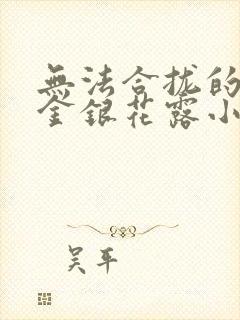 無法合拢的
金銀花露小
吴平